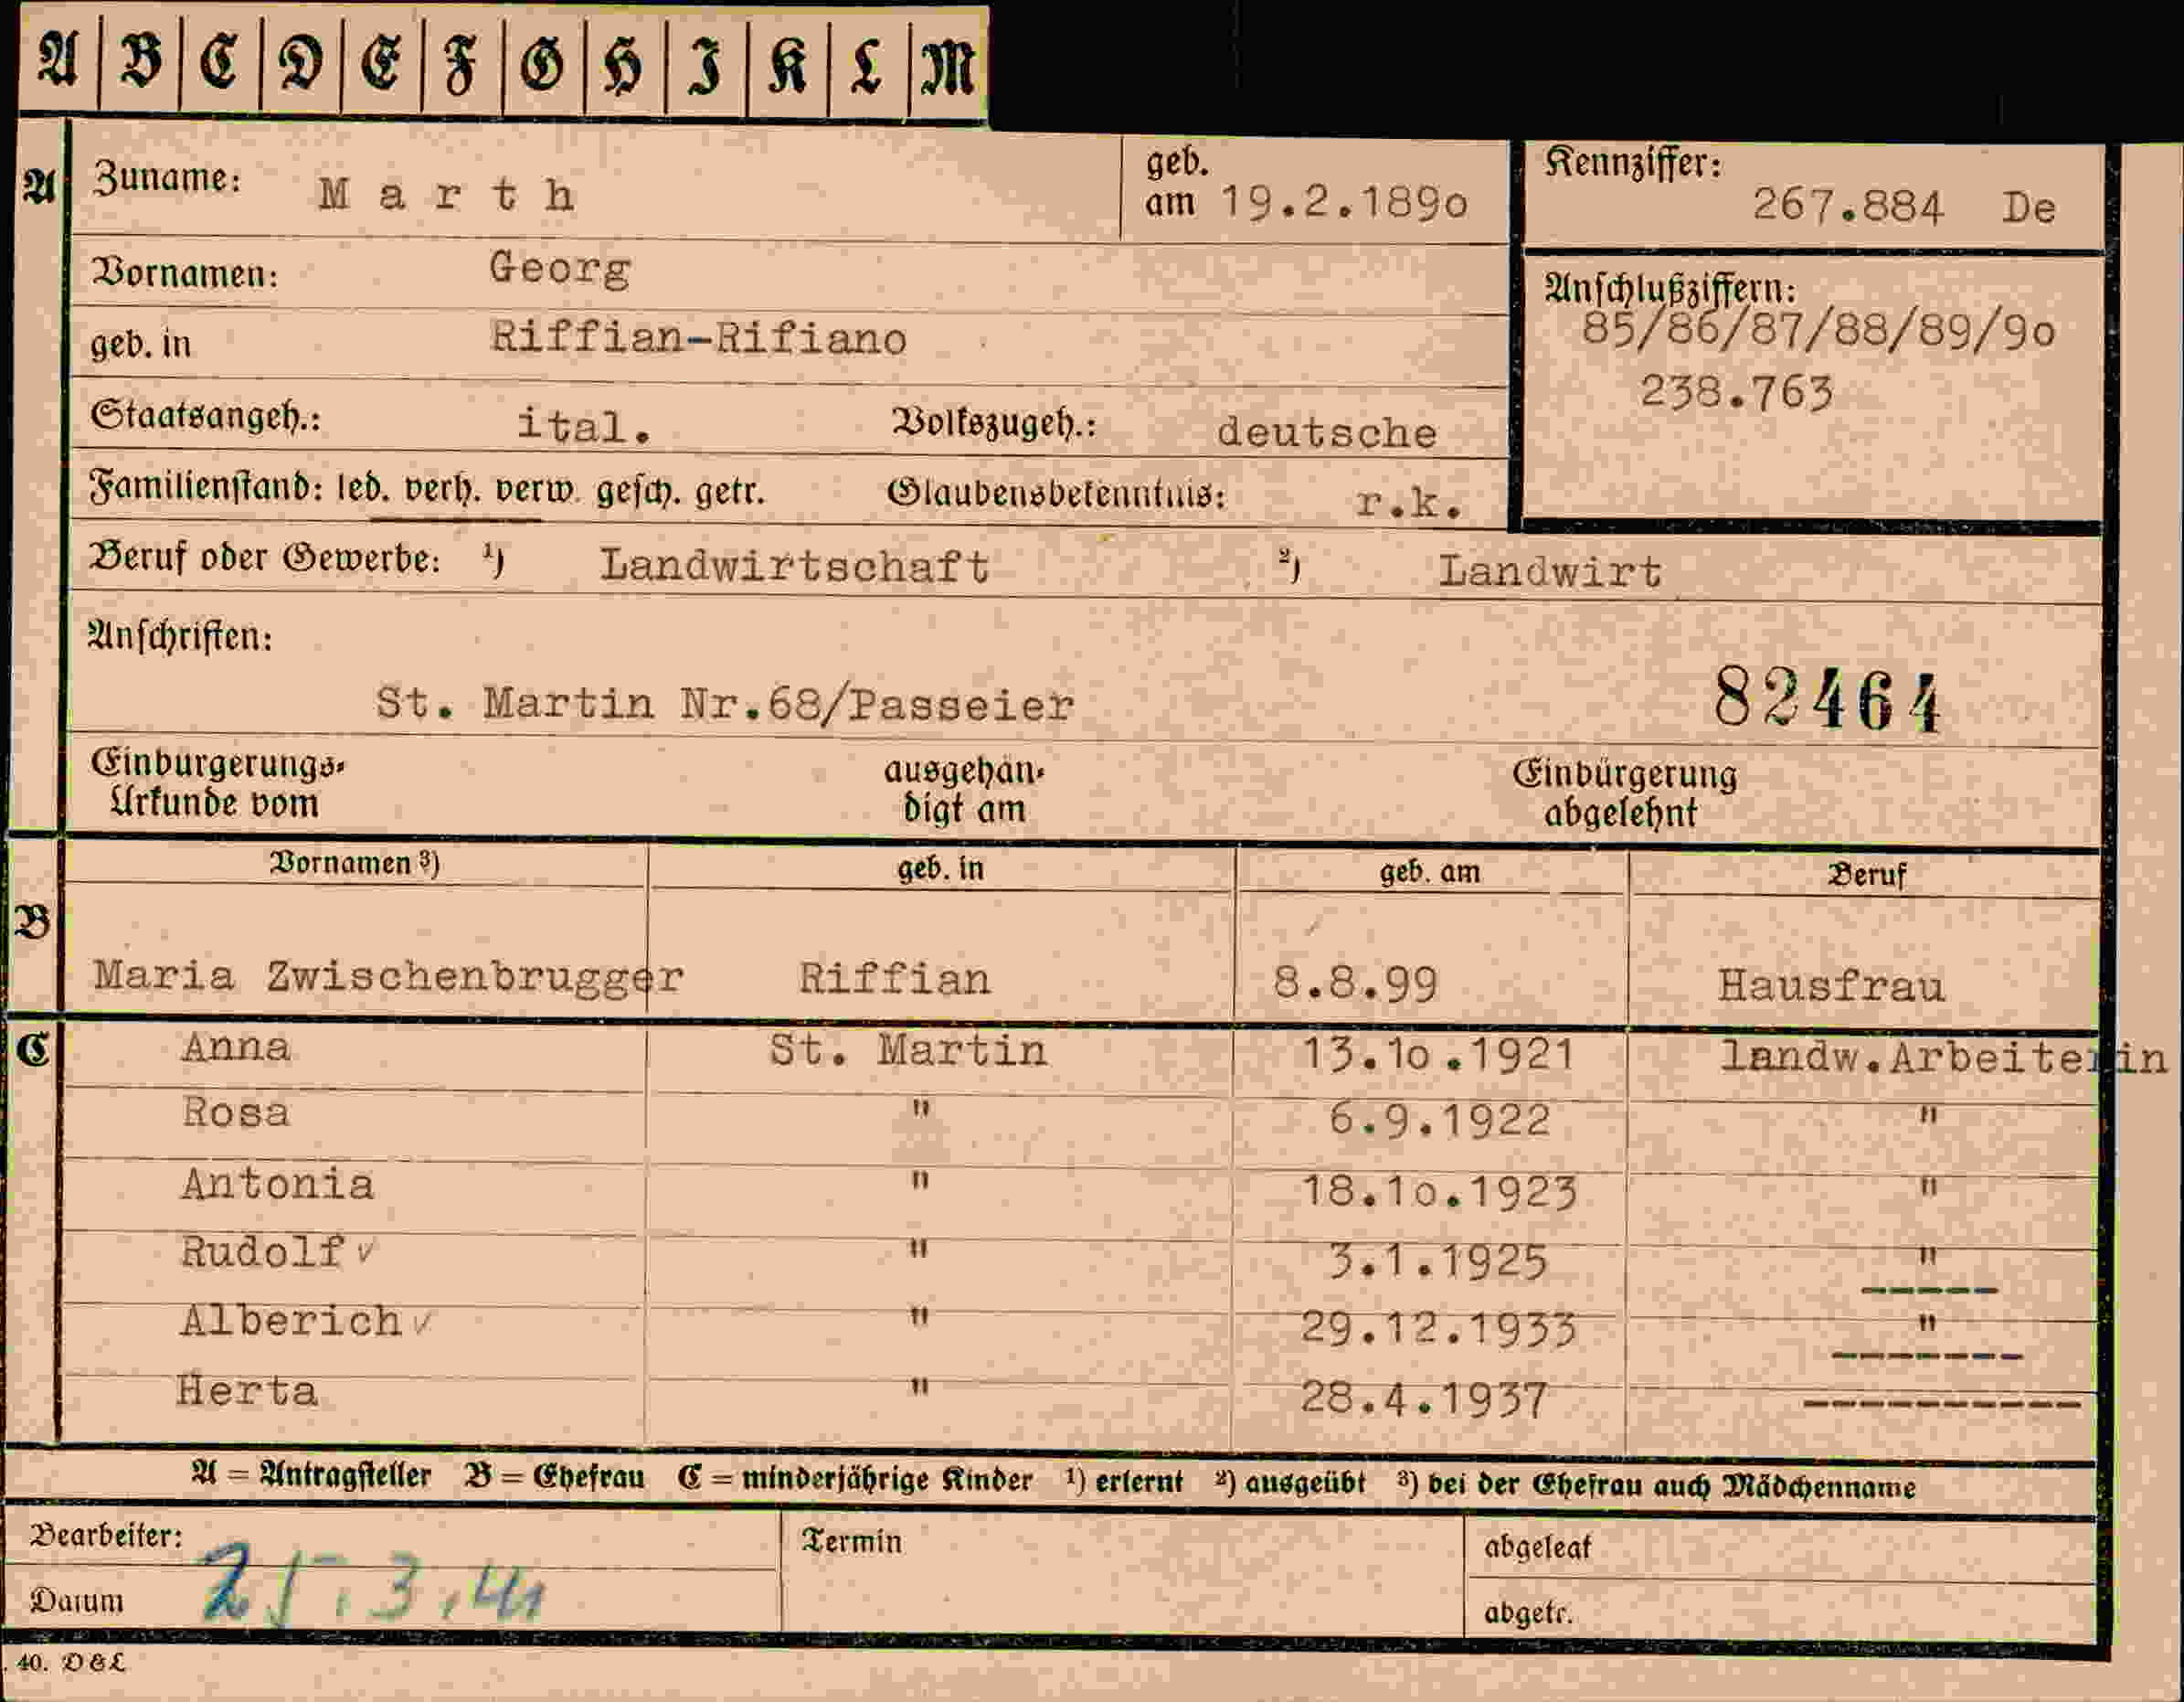 A B C D E F G H I K L M
A Zuname: Marth geb. am 19.2.189o Kennziffer: 267.884 De
Vornamen: Georg
Anschlußziffern:
85/86/87/88/89/9o
geb. in Riffian-Rifiano
238.763
Staatsangeh.: ital. Volkszugeh.: deutsche
Familienstand: led. verh. verw. gesch. getr. Glaubensbekenntnis: r.k.
Beruf oder Gewerbe: ¹) Landwirtschaft ²) Landwirt
Anschriften:
St. Martin Nr.68/Passeier 82464
Einbürgerungs-
Urkunde vom
ausgehän-
digt am
Einbürgerung
abgelehnt
Vornamen ³) geb. in geb. am Beruf
B Maria Zwischenbrugger Riffian 8.8.99 Hausfrau
C Anna St. Martin 13.1o.1921 landw.Arbeiterin
Rosa " 6.9.1922 "
Antonia " 18.1o.1923 "
Rudolf ✓ " 3.1.1925 " -----
Alberich ✓ " 29.12.1933 " -------
Herta " 28.4.1937 ----------
A = Antragsteller B = Ehefrau C = minderjährige Kinder ¹) erlernt ²) ausgeübt ³) bei der Ehefrau auch Mädchenname
Bearbeiter: Termin abgelegt
Datum 25.3.41 abgetr.
40. D&L